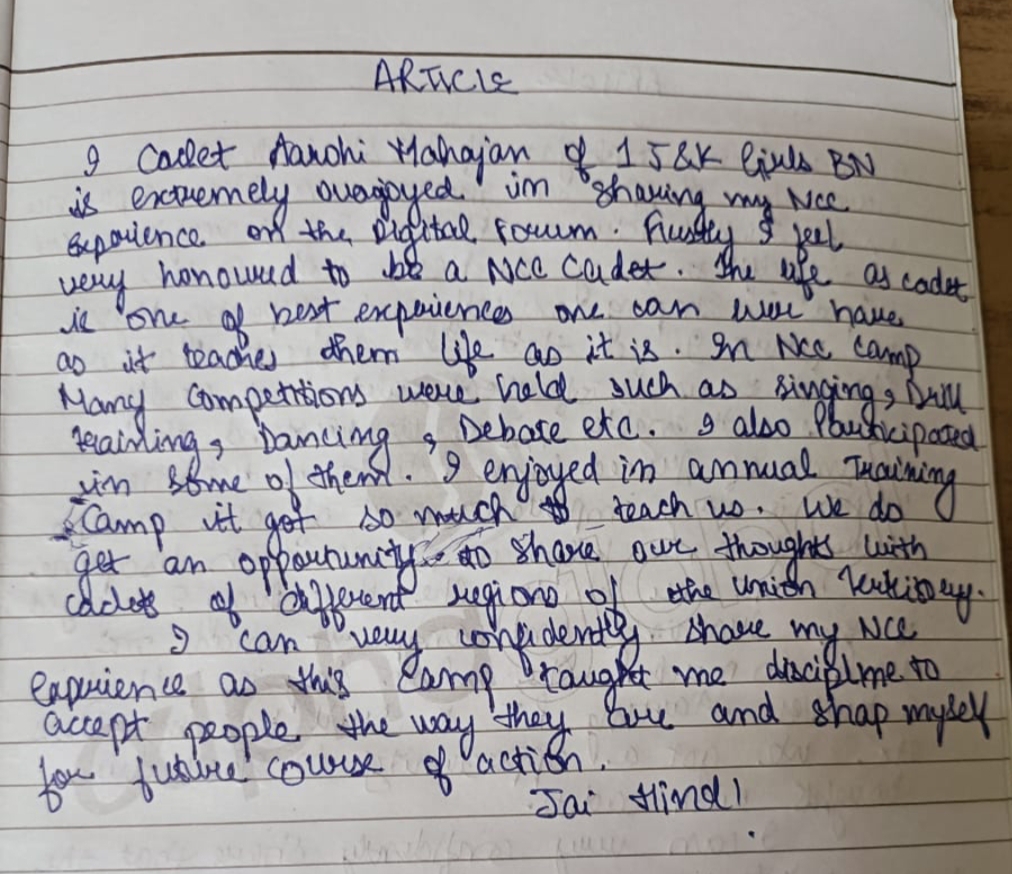 ARTICLE
I Cadet Aarohi Mahajan of 1 J&K Girls BN
is extremely overjoyed in sharing my NCC
experience on the Digital Forum. Firstly I feel
very honoured to be a NCC Cadet. The life as cadet
is one of best experiences one can ever have
as it teaches them life as it is. In NCC camp
Many Competitions were held such as singing, Drill
training, Dancing, Debate etc. I also Participated
in some of them. I enjoyed in annual Training
Camp it got so much to teach us. We do
get an opportunity to share our thoughts with
cadets of different regions of the union Territory.
I can very confidently share my NCC
Experience as this camp taught me discipline to
accept people the way they are and shap myself
for future course of action.
Jai Hind!